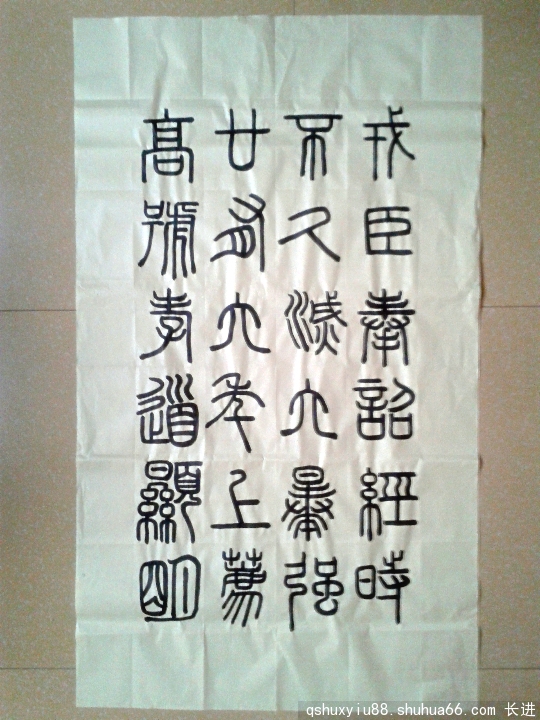 戎臣奉詔經時
不久滅六暴強
廿有六年上薦
高號孝道顯明
qshuxyiu88.shuhua66.com 长进